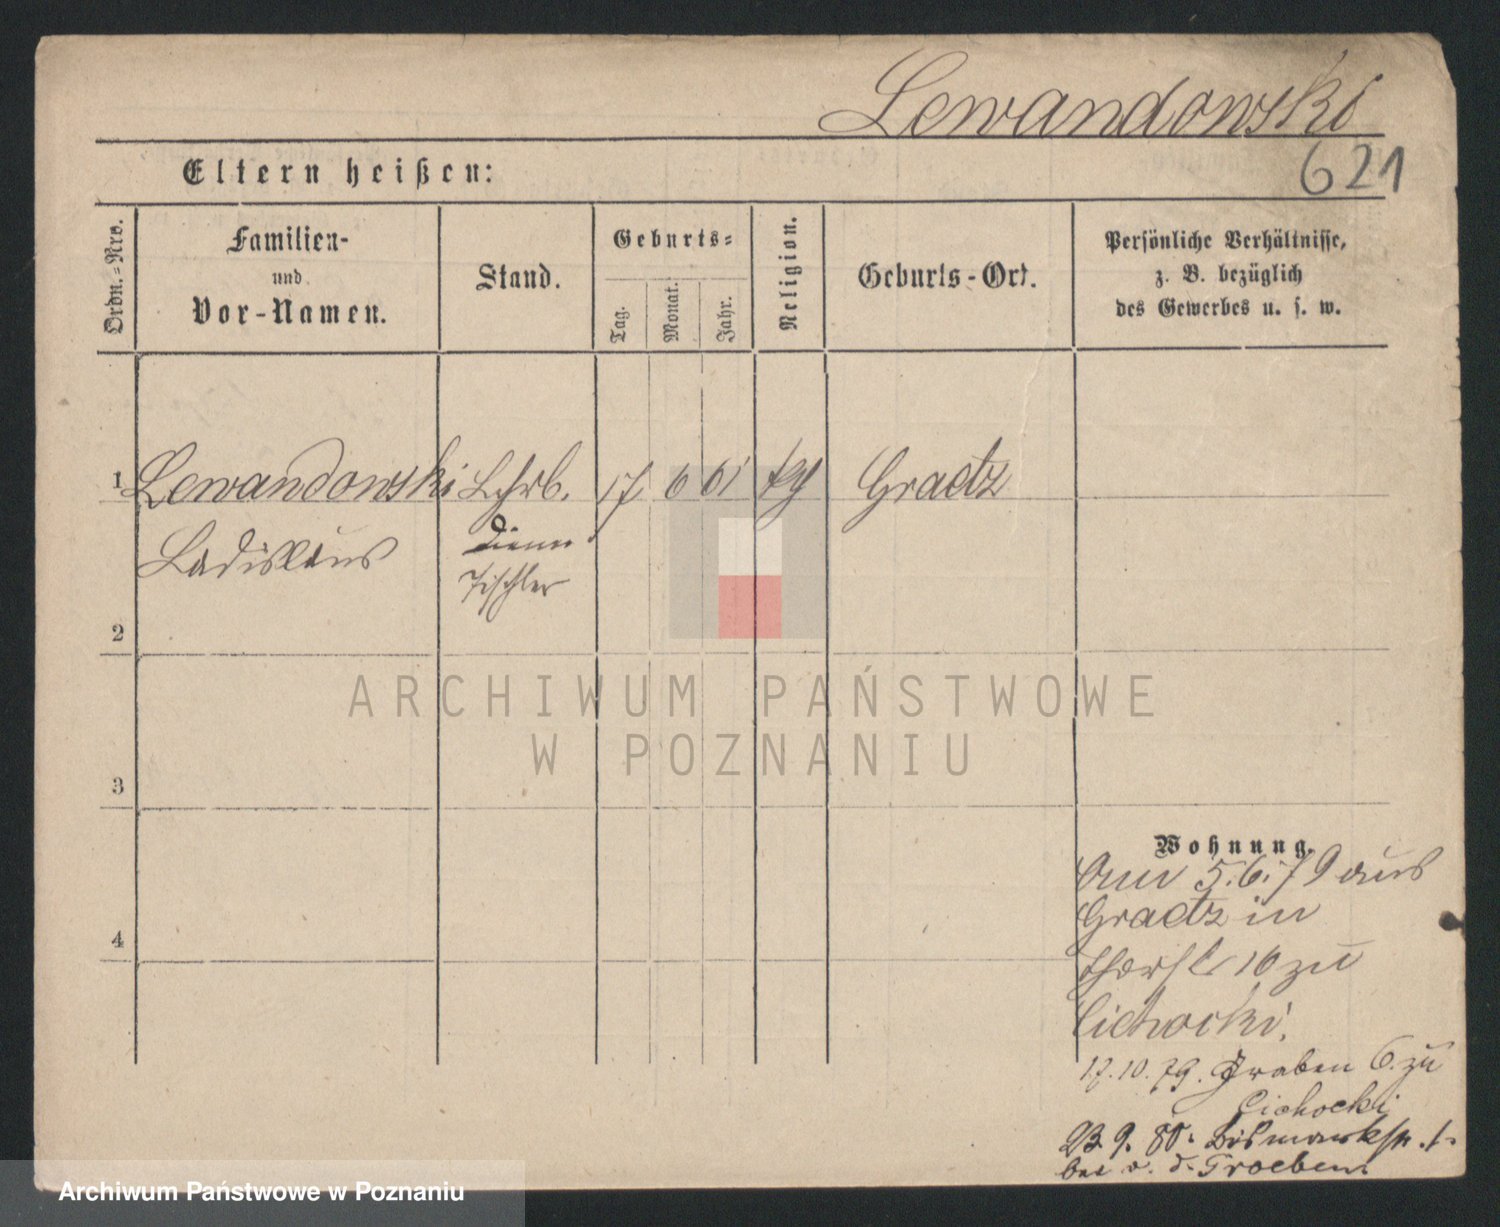 Lewandowski
621
Eltern heißen:
Ordn.-Nro.
Familien-
und
Vor-Namen.
Stand.
Geburts-
Tag.
Monat.
Jahr.
Religion.
Geburts-Ort.
Persönliche Verhältnisse,
z. B. bezüglich
des Gewerbes u. s. w.
1 Lewandowski Lehrb. 17 6 61 Graetz
Ladislaus
Tischler
2
3
4
Wohnung.
Am 5.6.79 aus
Graetz in
16 zu
Cichocki.
17.10.79. Graben 6. zu
Cichocki
23.9.80. Bismarckstr. 1.
bei v. d. Groeben.
ARCHIWUM PAŃSTWOWE
W POZNANIU
Archiwum Państwowe w Poznaniu